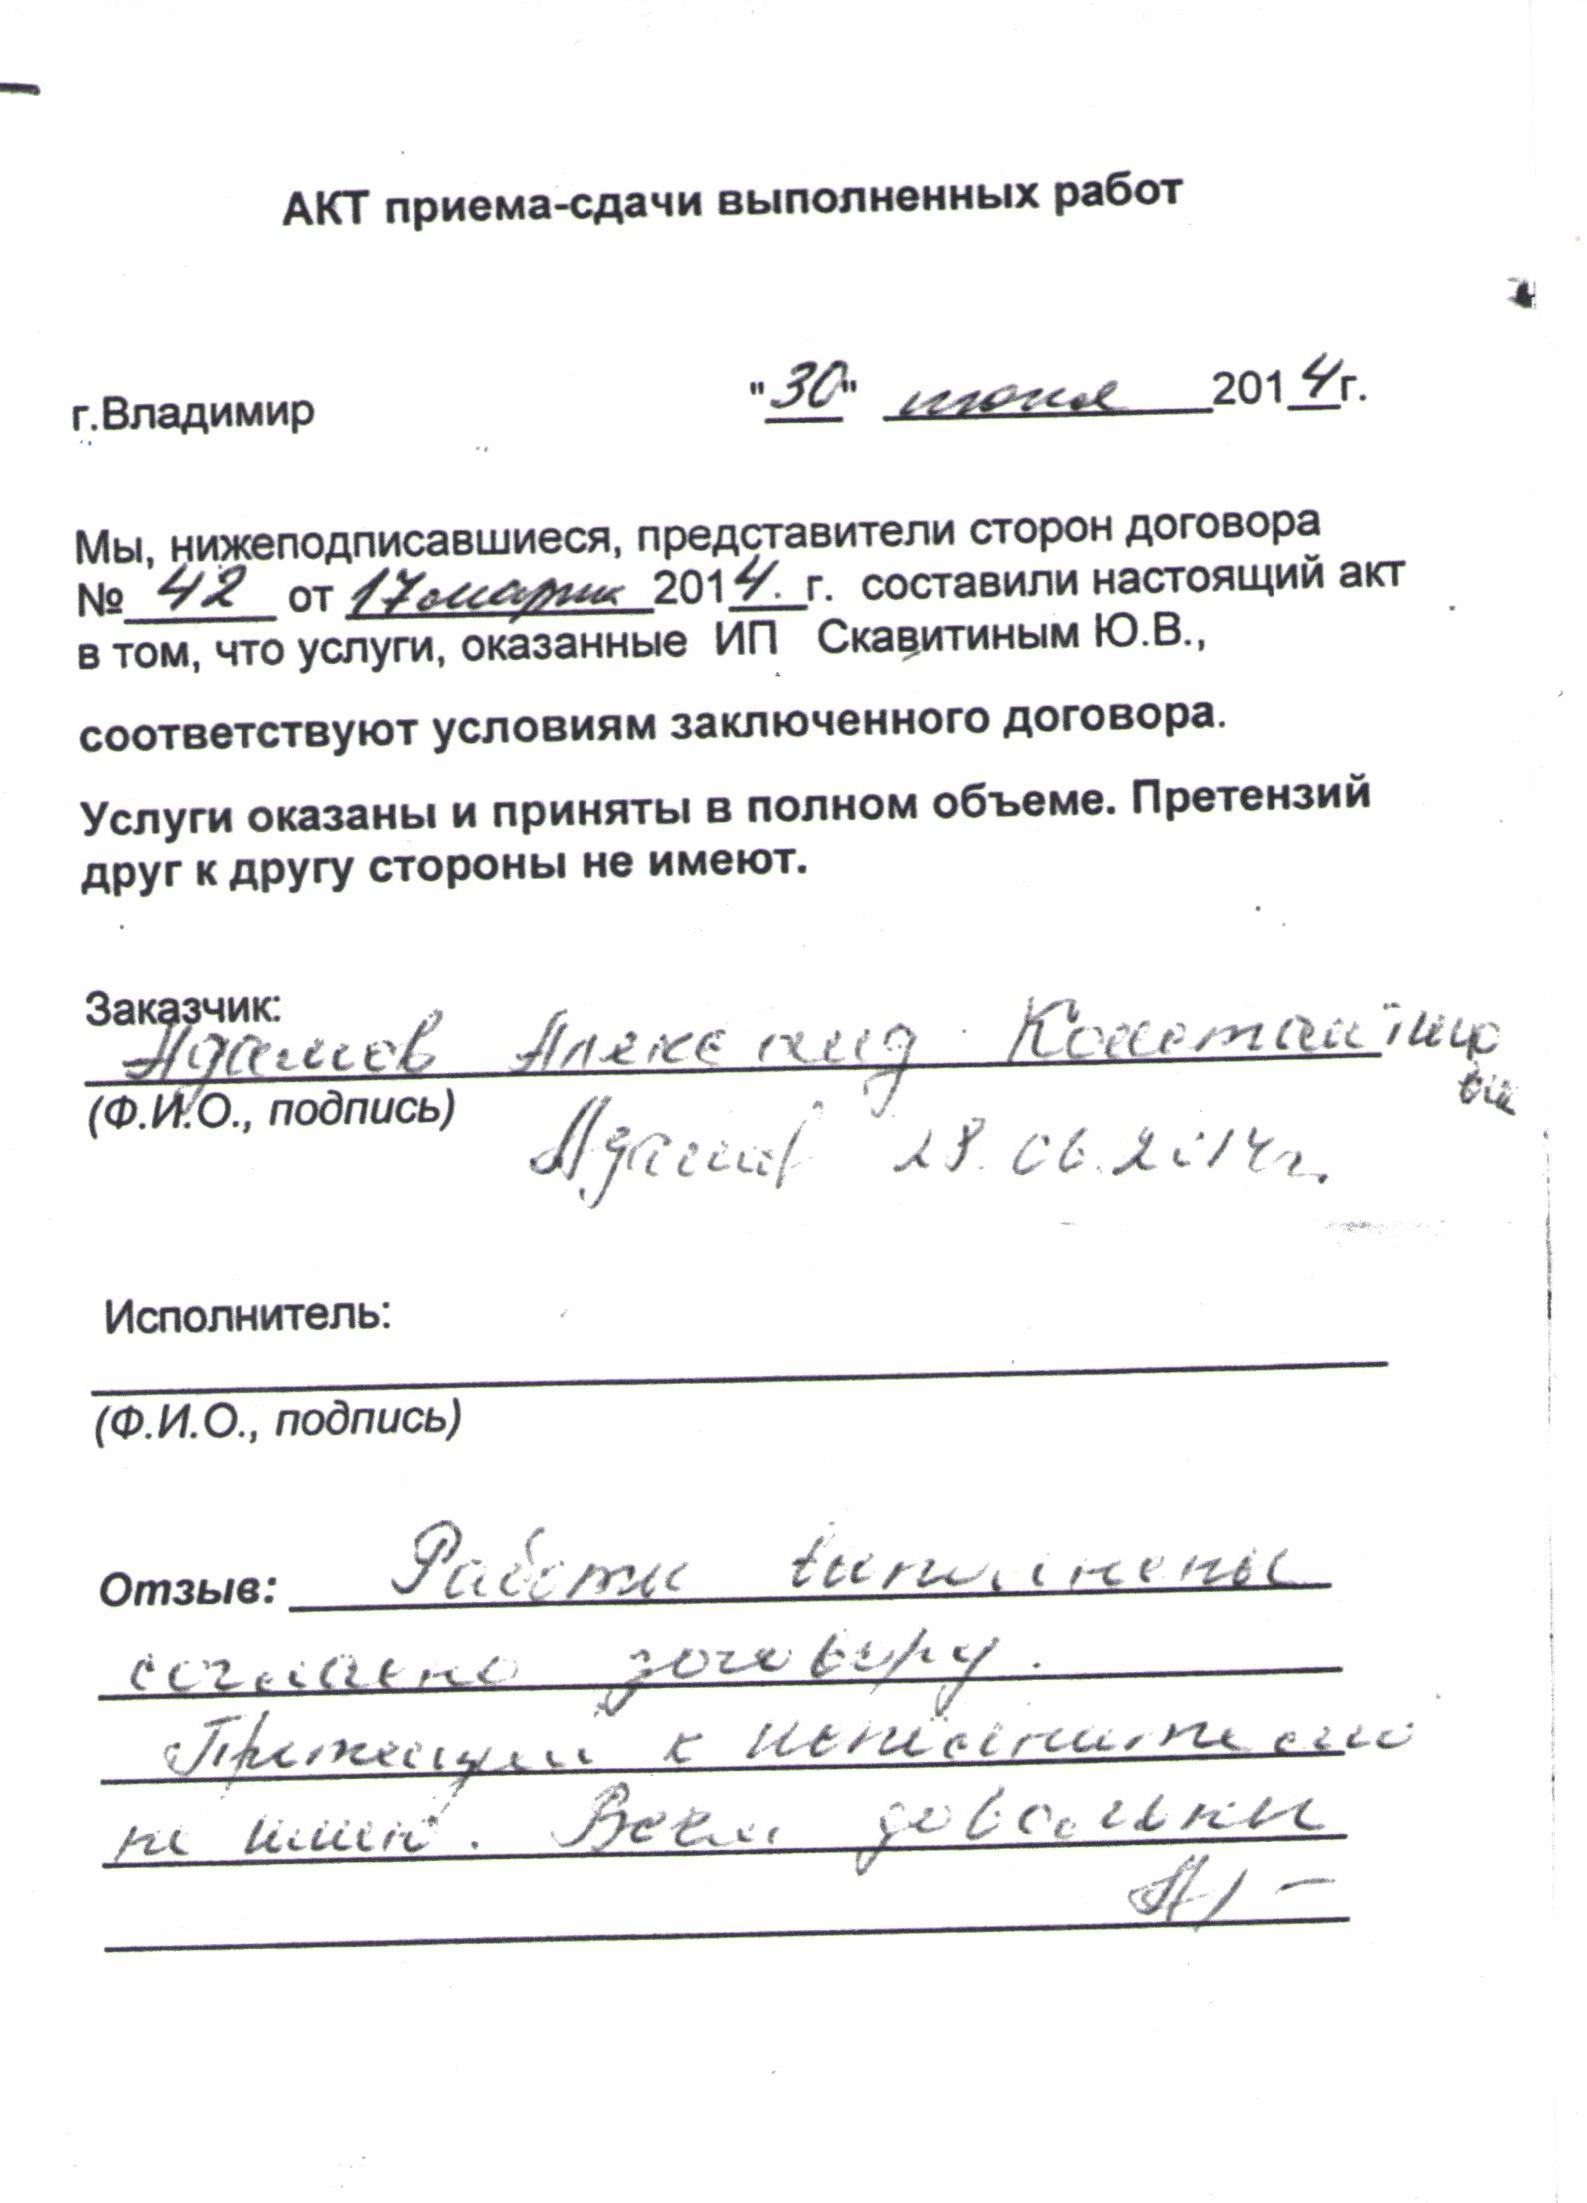 АКТ приема-сдачи выполненных работ
г.Владимир "30" июня 2014г.
Мы, нижеподписавшиеся, представители сторон договора
№ 42 от 17 марта 2014. г. составили настоящий акт
в том, что услуги, оказанные ИП Скавитиным Ю.В.,
соответствуют условиям заключенного договора.
Услуги оказаны и приняты в полном объеме. Претензий
друг к другу стороны не имеют.
Заказчик:
Адамов Александ Константино
вич
(Ф.И.О., подпись)
28.06.2014г.
Исполнитель:
(Ф.И.О., подпись)
Отзыв: Работы выполнены
согласно договору.
Претензий к исполнителю
не имею. Всем довольны